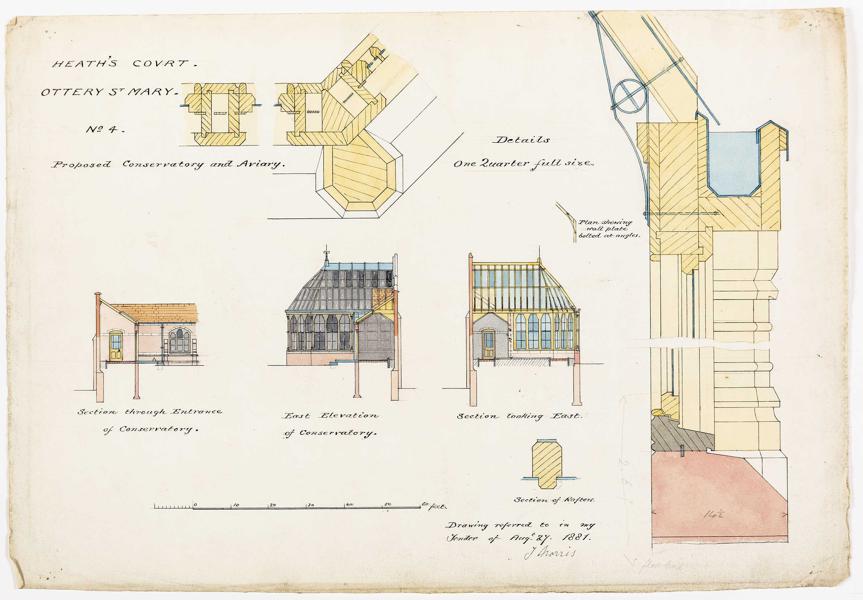 HEATH'S COVRT.
OTTERY ST MARY.
No 4.
Proposed Conservatory and Aviary.
Details
One Quarter full size.
Plan shewing
wall plate
bolted at angles.
Section through Entrance
of Conservatory.
East Elevation
of Conservatory.
Section looking East.
Section of Rafter.
0 10 20 30 40 50 60 feet.
Drawing referred to in my
Tender of Augt 27. 1881.
J Morris